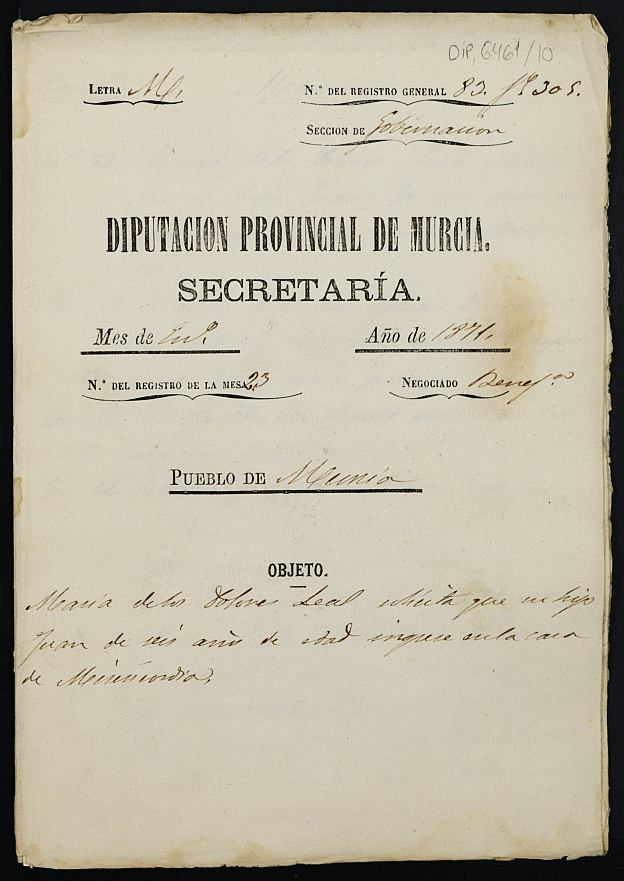 DIP, 6461/10
LETRA M.
N.º DEL REGISTRO GENERAL 83. fº 305.
SECCION DE Gobernacion
DIPUTACION PROVINCIAL DE MURCIA.
SECRETARÍA.
Mes de Enº.
Año de 1871.
N.º DEL REGISTRO DE LA MESA 23
NEGOCIADO Benefª
PUEBLO DE Murcia
OBJETO.
Maria de los Dolores Leal solicita que su hijo
Juan de seis años de edad ingrese en la casa
de Misericordia.